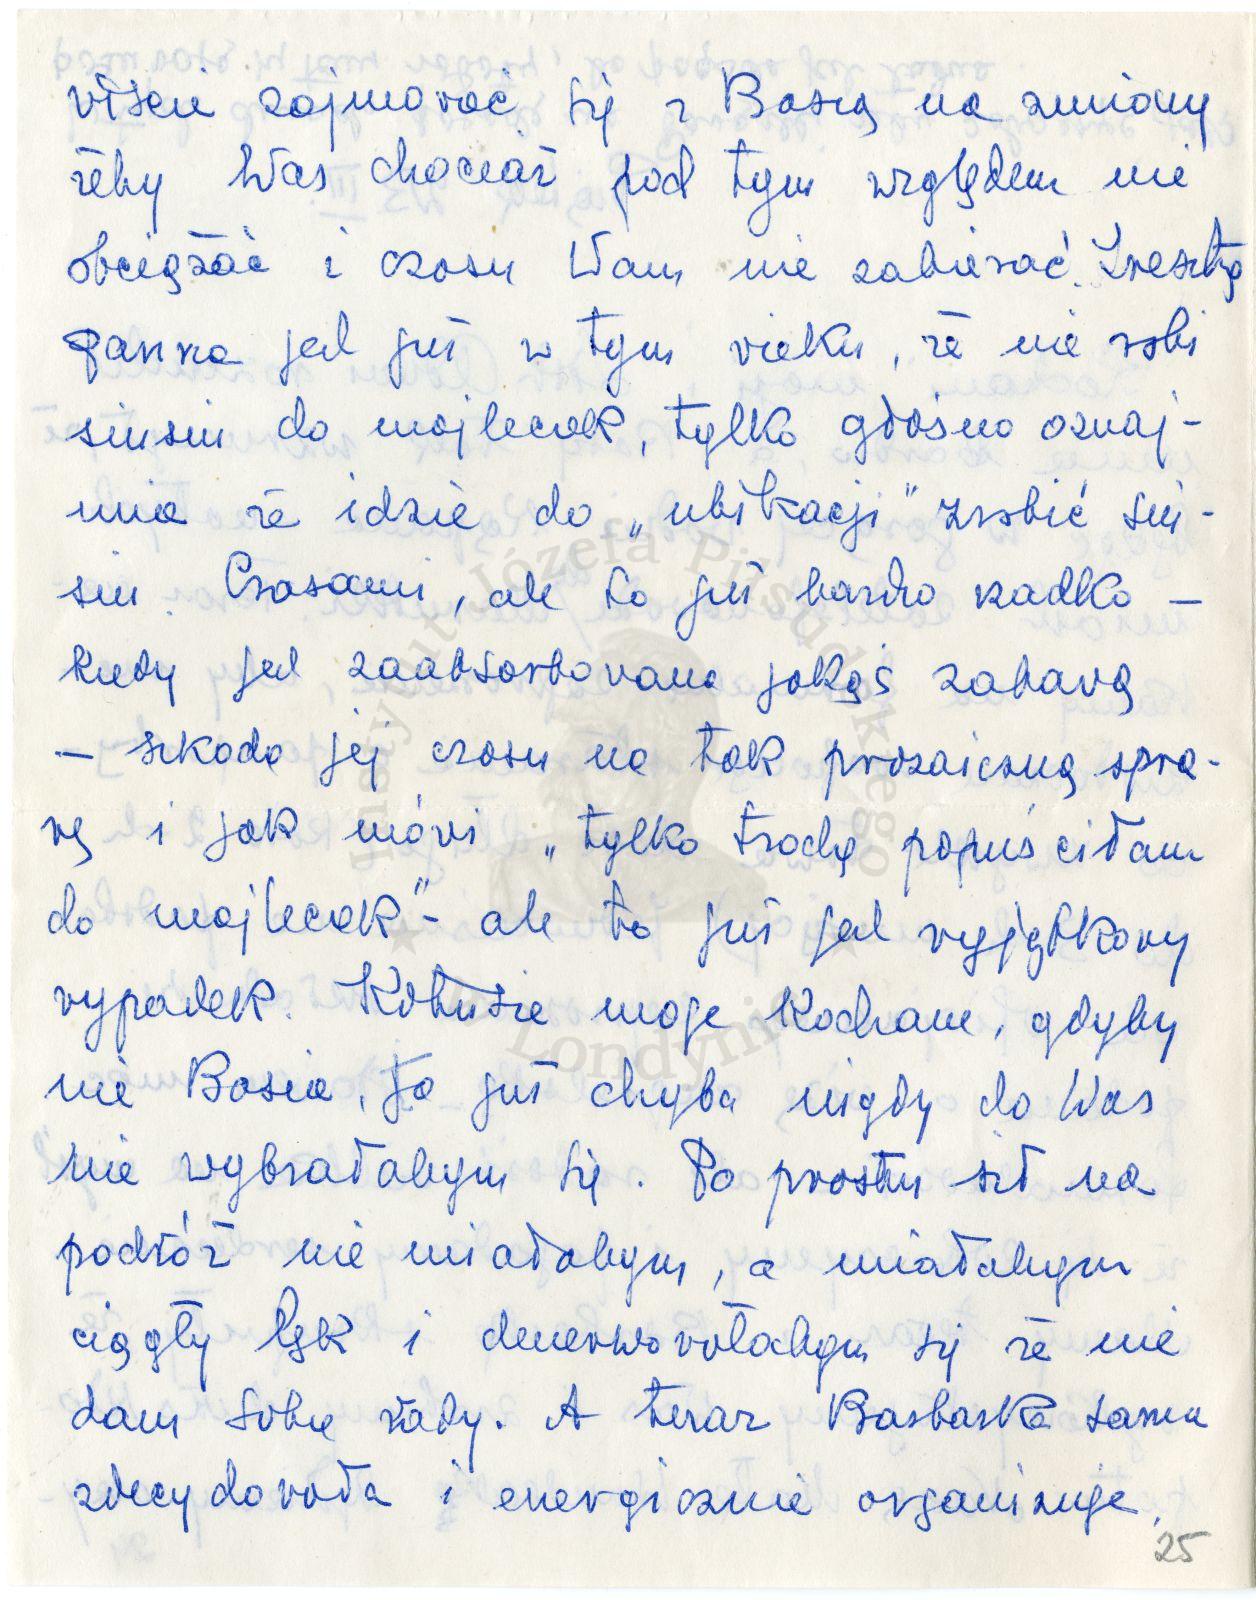 wiście zajmować się z Basią na zmianę
żeby Was chociaż pod tym względem nie
obciążać i czasu Wam nie zabierać. Zresztą
panna jest już w tym wieku, że nie robi
siusiu do majteczek, tylko głośno oznaj-
mia że idzie do „ubikacji" zrobić siu-
siu. Czasami, ale to już bardzo rzadko –
kiedy jest zaabsorbowana jakąś zabawą
– szkoda jej czasu na tak prozaiczną spra-
wę i jak mówi „tylko trochę popuściłam
do majteczek" – ale to już jest wyjątkowy
wypadek. Kotusie moje kochane, gdyby
nie Basia, to już chyba nigdy do Was
nie wybrałabym się. Po prostu sił na
podróż nie miałabym, a miałabym
ciągły lęk i denerwowałabym się że nie
dam sobie rady. A teraz Basbaska sama
zdecydowała i energicznie organizuje,
25
Instytut Józefa Piłsudskiego
w Londynie